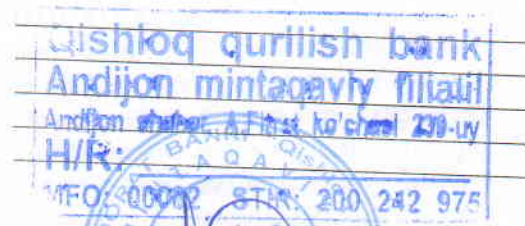 Qishloq qurilish bank
Andijon mintaqaviy filiali
Andijon shahar, A.Fitrat ko'chasi 239-uy
H/R:
MFO: 00082 STIR: 200 242 975
BANK
TAQAVI